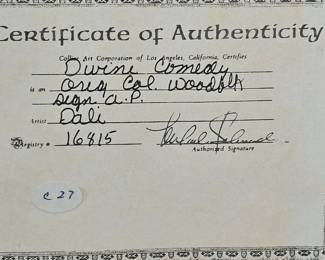 Certificate of Authenticity
Art Corporation of Los Angeles, California, Certifies
Divine Comedy
is an Orig Col. Woodblk
Sign A.P.
Artist Dali
Registry # 16815
Authorized Signature
C 27